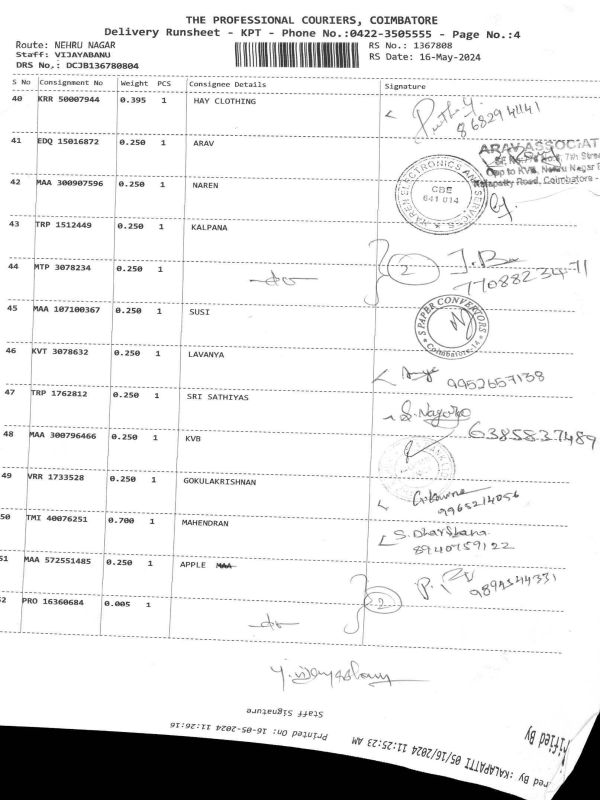 THE PROFESSIONAL COURIERS, COIMBATORE
Delivery Runsheet - KPT - Phone No.:0422-3505555 - Page No.:4
Route: NEHRU NAGAR RS No.: 1367808
Staff: VIJAYABANU RS Date: 16-May-2024
DRS No,: DCJB136780804
S No Consignment No Weight PCS Consignee Details Signature
40 KRR 50007944 0.395 1 HAY CLOTHING
8682941141
41 EDQ 15016872 0.250 1 ARAV
ARAV ASSOCIAT
7th Stree
Opp to KVB, Nehru Nagar
Kalapatty Road, Coimbatore -
42 MAA 300907596 0.250 1 NAREN
NAREN ELECTRONICS AND SERVICES
CBE
641 014
43 TRP 1512449 0.250 1 KALPANA
44 MTP 3078234 0.250 1 -do- 2
7708823471
45 MAA 107100367 0.250 1 SUSI
S PAPER CONVERTORS
Coimbatore-14
46 KVT 3078632 0.250 1 LAVANYA
9952657138
47 TRP 1762812 0.250 1 SRI SATHIYAS
6385837489
48 MAA 300796466 0.250 1 KVB
49 VRR 1733528 0.250 1 GOKULAKRISHNAN
9965214056
50 TMI 40076251 0.700 1 MAHENDRAN
S. Dharshana
8940759122
51 MAA 572551485 0.250 1 APPLE MAA
9894544331
52 PRO 16360684 0.005 1 -do- 2
Staff Signature
Printed On: 16-05-2024 11:26:16
rified By
red By: KALAPATTI 05/16/2024 11:25:23 AM